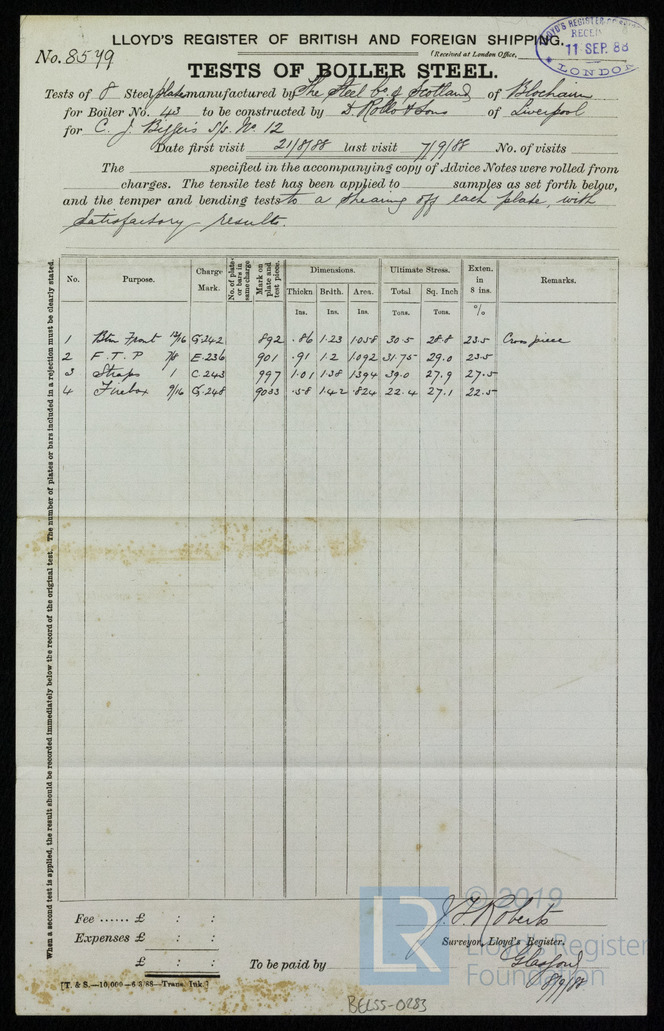 LLOYD'S REGISTER OF BRITISH AND FOREIGN SHIPPING.
No. 8579
(Received at London Office,
LLOYD'S REGISTER OF
11 SEP. 88
LONDON
TESTS OF BOILER STEEL.
Tests of 8 Steel plates manufactured by The Steel Co. of Scotland of Blochairn
for Boiler No. 43 to be constructed by D. Rollo & Sons of Liverpool
for C. J. S/S. No 12
Date first visit 21/8/88 last visit 7/9/88 No. of visits
The specified in the accompanying copy of Advice Notes were rolled from
charges. The tensile test has been applied to samples as set forth below,
and the temper and bending tests to a shearing off each plate, with
satisfactory results.
When a second test is applied, the result should be recorded immediately below the record of the original test. The number of plates or bars included in a rejection must be clearly stated.
No. Purpose. Charge Mark. No. of plates or bars in same charge Mark on plate and test piece. Dimensions. Ultimate Stress. Exten. in 8 ins. Remarks.
Thickn Brdth. Area. Total Sq. Inch
Ins. Ins. Ins. Tons. Tons. %
1 Btm Front 13/16 G.242 892 .86 1.23 1.058 30.5 28.8 23.5 Cross piece
2 F. T. P 7/8 E.236 901 .91 1.2 1.092 31.75 29.0 23.5
3 Straps 1 C.243 997 1.01 1.38 1.394 39.0 27.9 27.5
4 Firebox 9/16 G.248 9003 .58 1.42 .824 22.4 27.1 22.5
Fee ...... £ : :
Expenses £ : :
£ : :
To be paid by
J. F. Roberts
Surveyor, Lloyd's Register.
Glasgow
8/9/88
[T. & S.—10,000—6/3/88—Trans. Ink.]
BEL55-0283
LR
© 2019
Lloyd's Register
Foundation